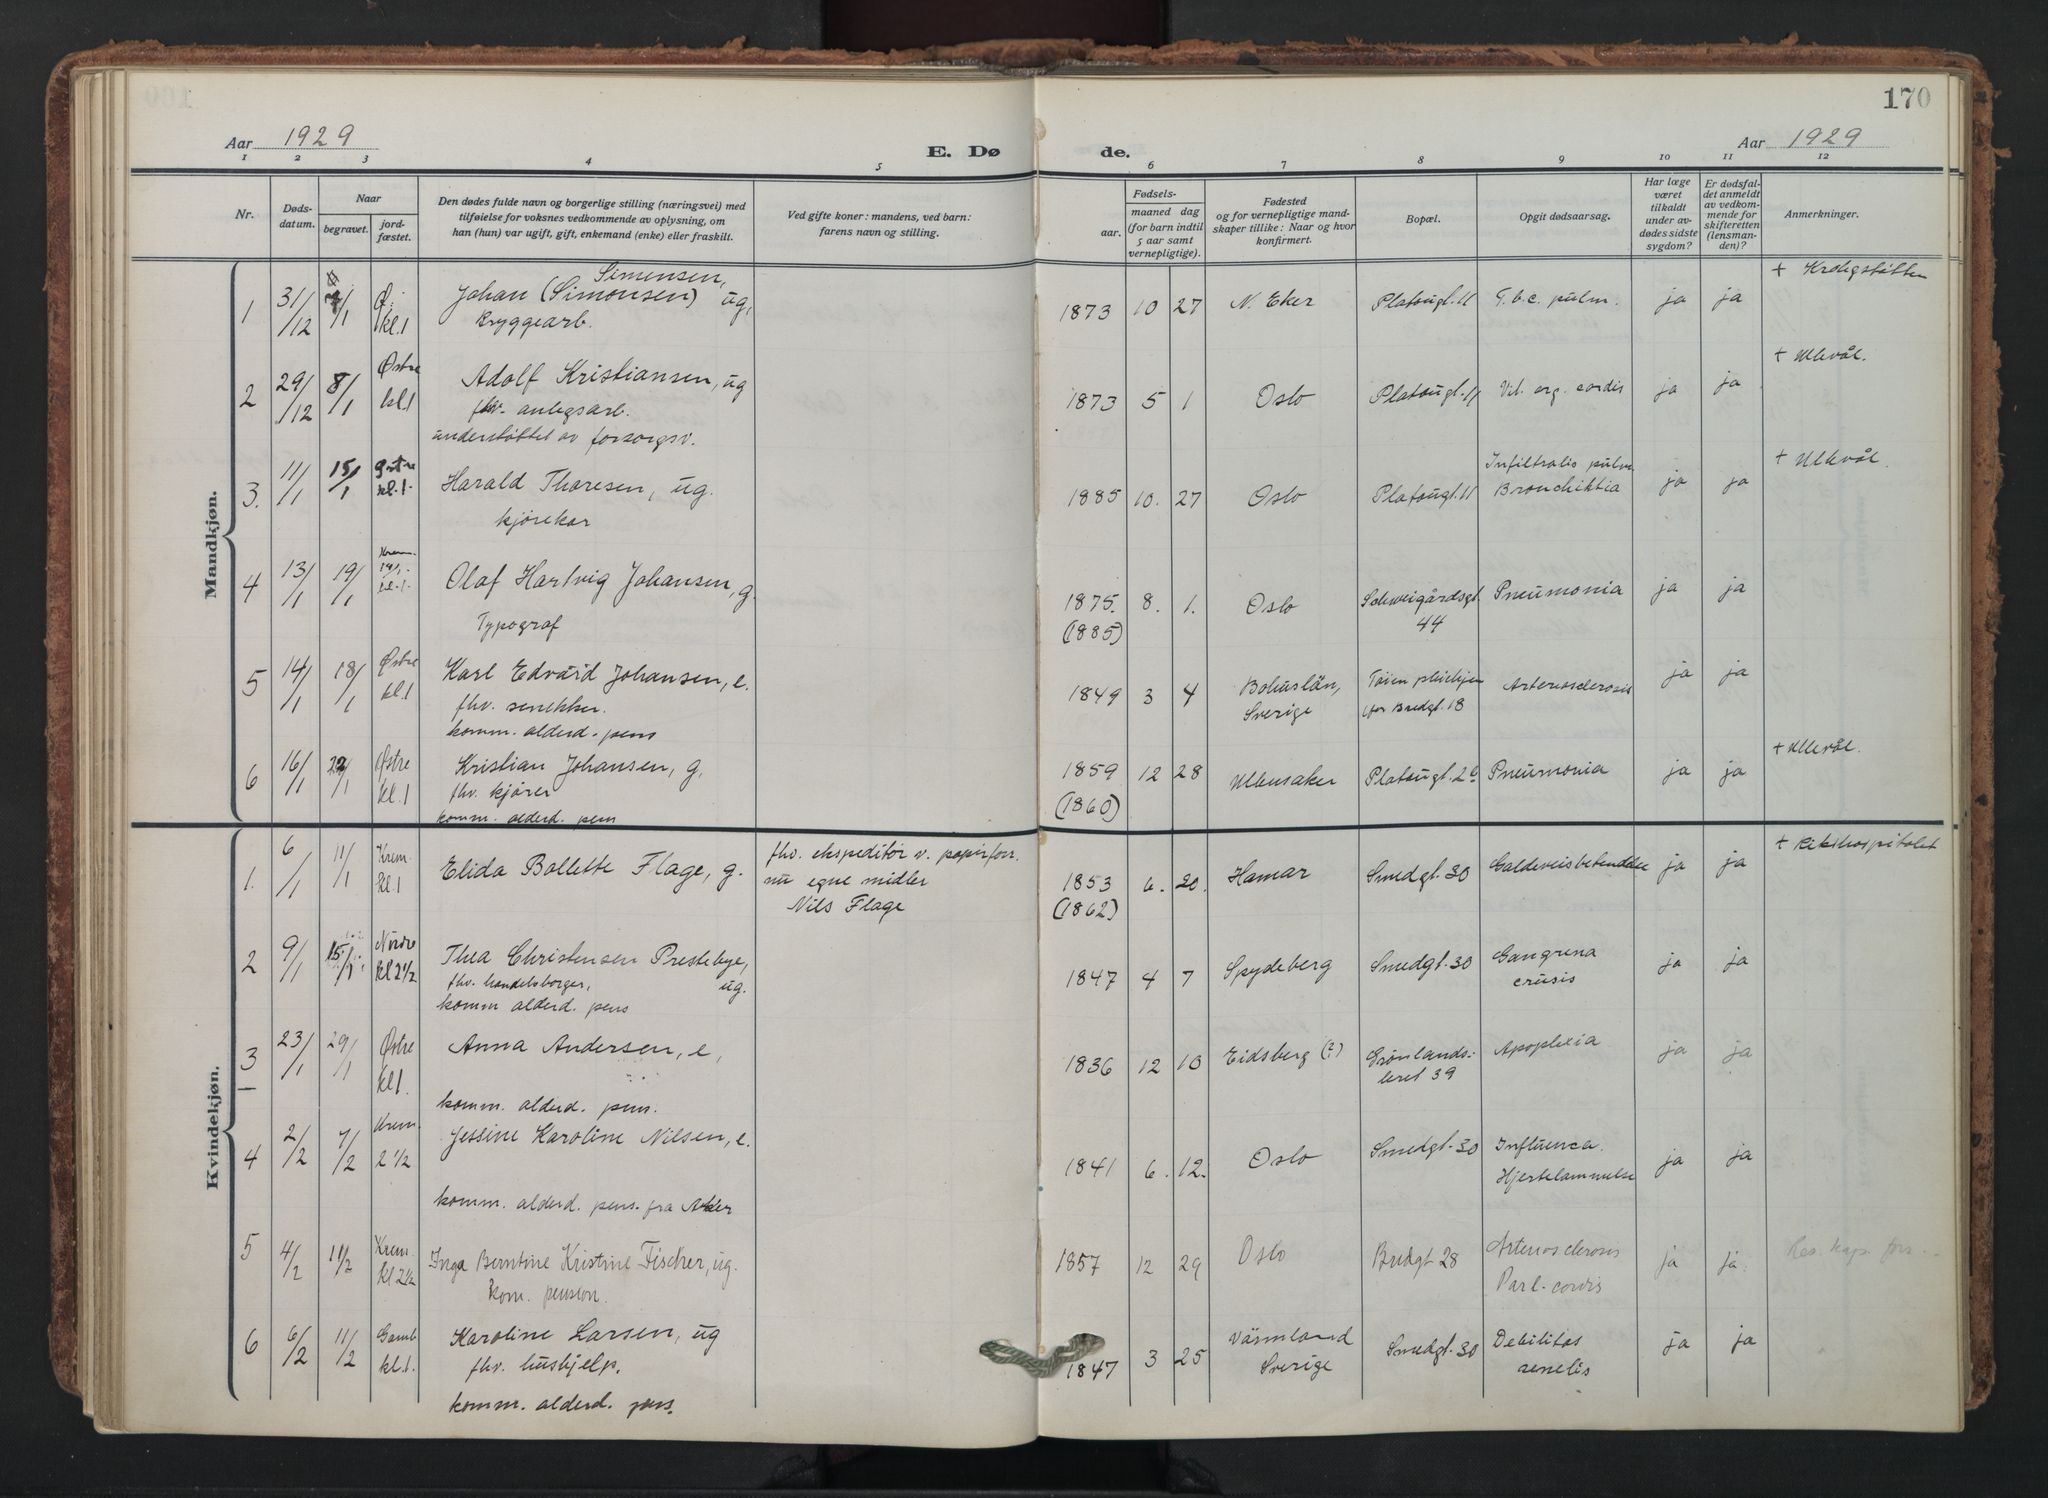 170
Aar 1929
E. Dø
de.
Aar 1929
1 2 3 4 5 6 7 8 9 10 11 12
Nr.
Døds-
datum.
Naar
begravet.
jord-
fæstet.
Den dødes fulde navn og borgerlige stilling (næringsvei) med
tilføielse for voksnes vedkommende av oplysning, om
han (hun) var ugift, gift, enkemand (enke) eller fraskilt.
Ved gifte koner: mandens, ved barn:
farens navn og stilling.
Fødsels-
aar.
maaned dag
(for barn indtil
5 aar samt
vernepligtige).
Fødested
og for vernepligtige mand-
skaper tillike: Naar og hvor
konfirmert.
Bopæl.
Opgit dødsaarsag.
Har læge
været
tilkaldt
under av-
dødes sidste
sygdom?
Er dødsfal-
det anmeldt
av vedkom-
mende for
skifteretten
(lensman-
den)?
Anmerkninger.
Mandkjøn.
1 31/12 /1 Ø. kl.1
Simensen,
Johan (Simonsen) ug,
Bryggearb.
1873 10 27 N. Eker Platougt. 11 T.b.c. pulm. ja ja + Krohgstøtten
2 29/12 8/1 Østre kl.1
Adolf Kristiansen, ug
fhv. anlegsarb.
understøttet av forsorgsv.
1873 5 1 Oslo Platougt. 11 Vit. org. cordis ja ja + Ullevål.
3. 11/1 15/1 Østre kl.1.
Harald Thoresen, ug.
kjørekar
1885 10. 27 Oslo Platougt. 11 Infiltratio pulm.
Bronchiktia ja ja + Ullevål.
4 13/1 19/1 Krem. kl.1.
Olaf Hartvig Johansen, g.
Typograf
1875. 8. 1. Oslo Schweigårdsgt. 44 Pneumonia ja ja
(1885)
5 14/1 18/1 Østre kl.1
Karl Edvard Johansen, e.
fhv. snekker.
komm. alderd. pens
1849 3 4 Bohuslän, Sverige Tøien pleiehjem
før Bredgt. 18 Arteriosclerosis ja ja
6 16/1 22/1 Østre kl.1
Kristian Johansen, g,
fhv. kjører
komm. alderd. pens
1859 12 28 Ullensaker Platougt. 26 Pneumonia ja ja + Ullevål.
(1860)
Kvindekjøn.
1. 6/1 11/1 Krem. kl.1
Elida Bollette Flage, g.
fhv. ekspeditør v. papirforr.
nu egne midler
Nils Flage
1853 6. 20. Hamar Smedgt. 30 Galdeveisbetendelse ja ja + Rikshospitalet
(1862)
2 9/1 15/1 Nordre kl 2 1/2
Thea Christensen Prestebye,
fhv. handelsborger, ug.
komm alderd. pens
1847 4 7 Spydeberg Smedgt. 30 Gangrena
crusis ja ja
3 23/1 29/1 Østre kl.1.
Anna Andersen, e,
komm. alderd. pens.
1836 12 10 Eidsberg (?) Grønlands-
leret 39 Apoplexia ja ja
4 2/2 7/2 Krem. 2 1/2
Jessine Karoline Nilsen, e.
komm. alderd. pens. fra Aker
1841 6. 12. Oslo Smedgt. 30 Influenca.
Hjertelammelse ja ja
5 4/2 11/2 Krem. kl 2 1/2
Inga Berntine Kristine Fischer, ug.
kom. pension.
1857 12 29 Oslo Bredgt 28 Arteriosclerosis
Parl. cordis ja ja. Res. kap. fors.
6 6/2 11/2 Gamb kl.1.
Karoline Larsen, ug
fhv. hushjelp.
komm. alderd. pens.
1847 3 25 Värmland
Sverige Smedgt. 30 Debilitas
senelis ja ja